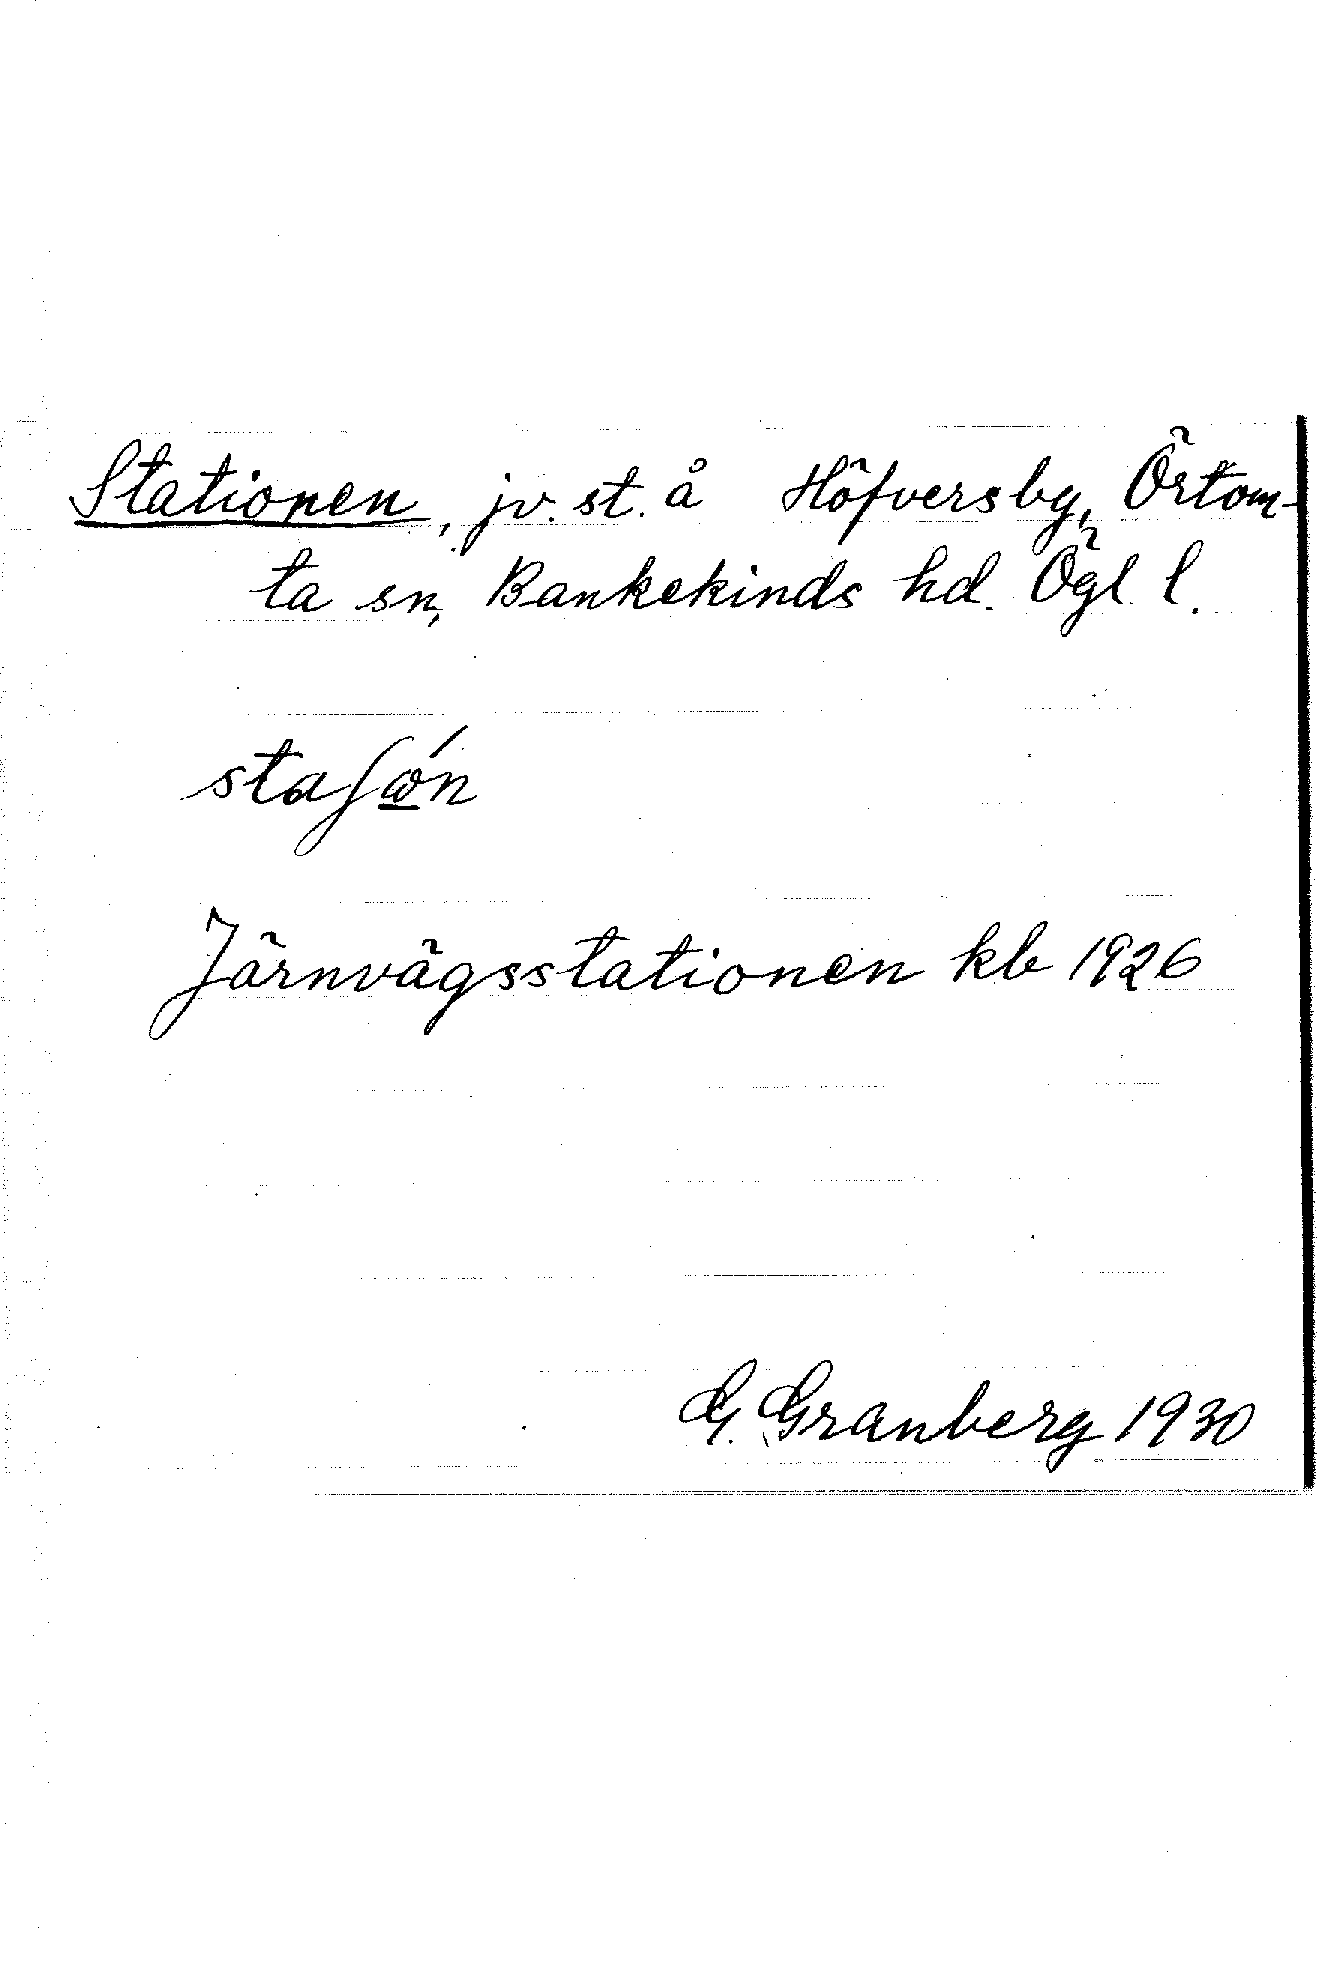 Stationen, jv. st. å Höfversby, Örtom-
ta sn, Bankekinds hd. Ögl. l.
staʃώn
Järnvägsstationen kb 1926
G. Granberg 1930